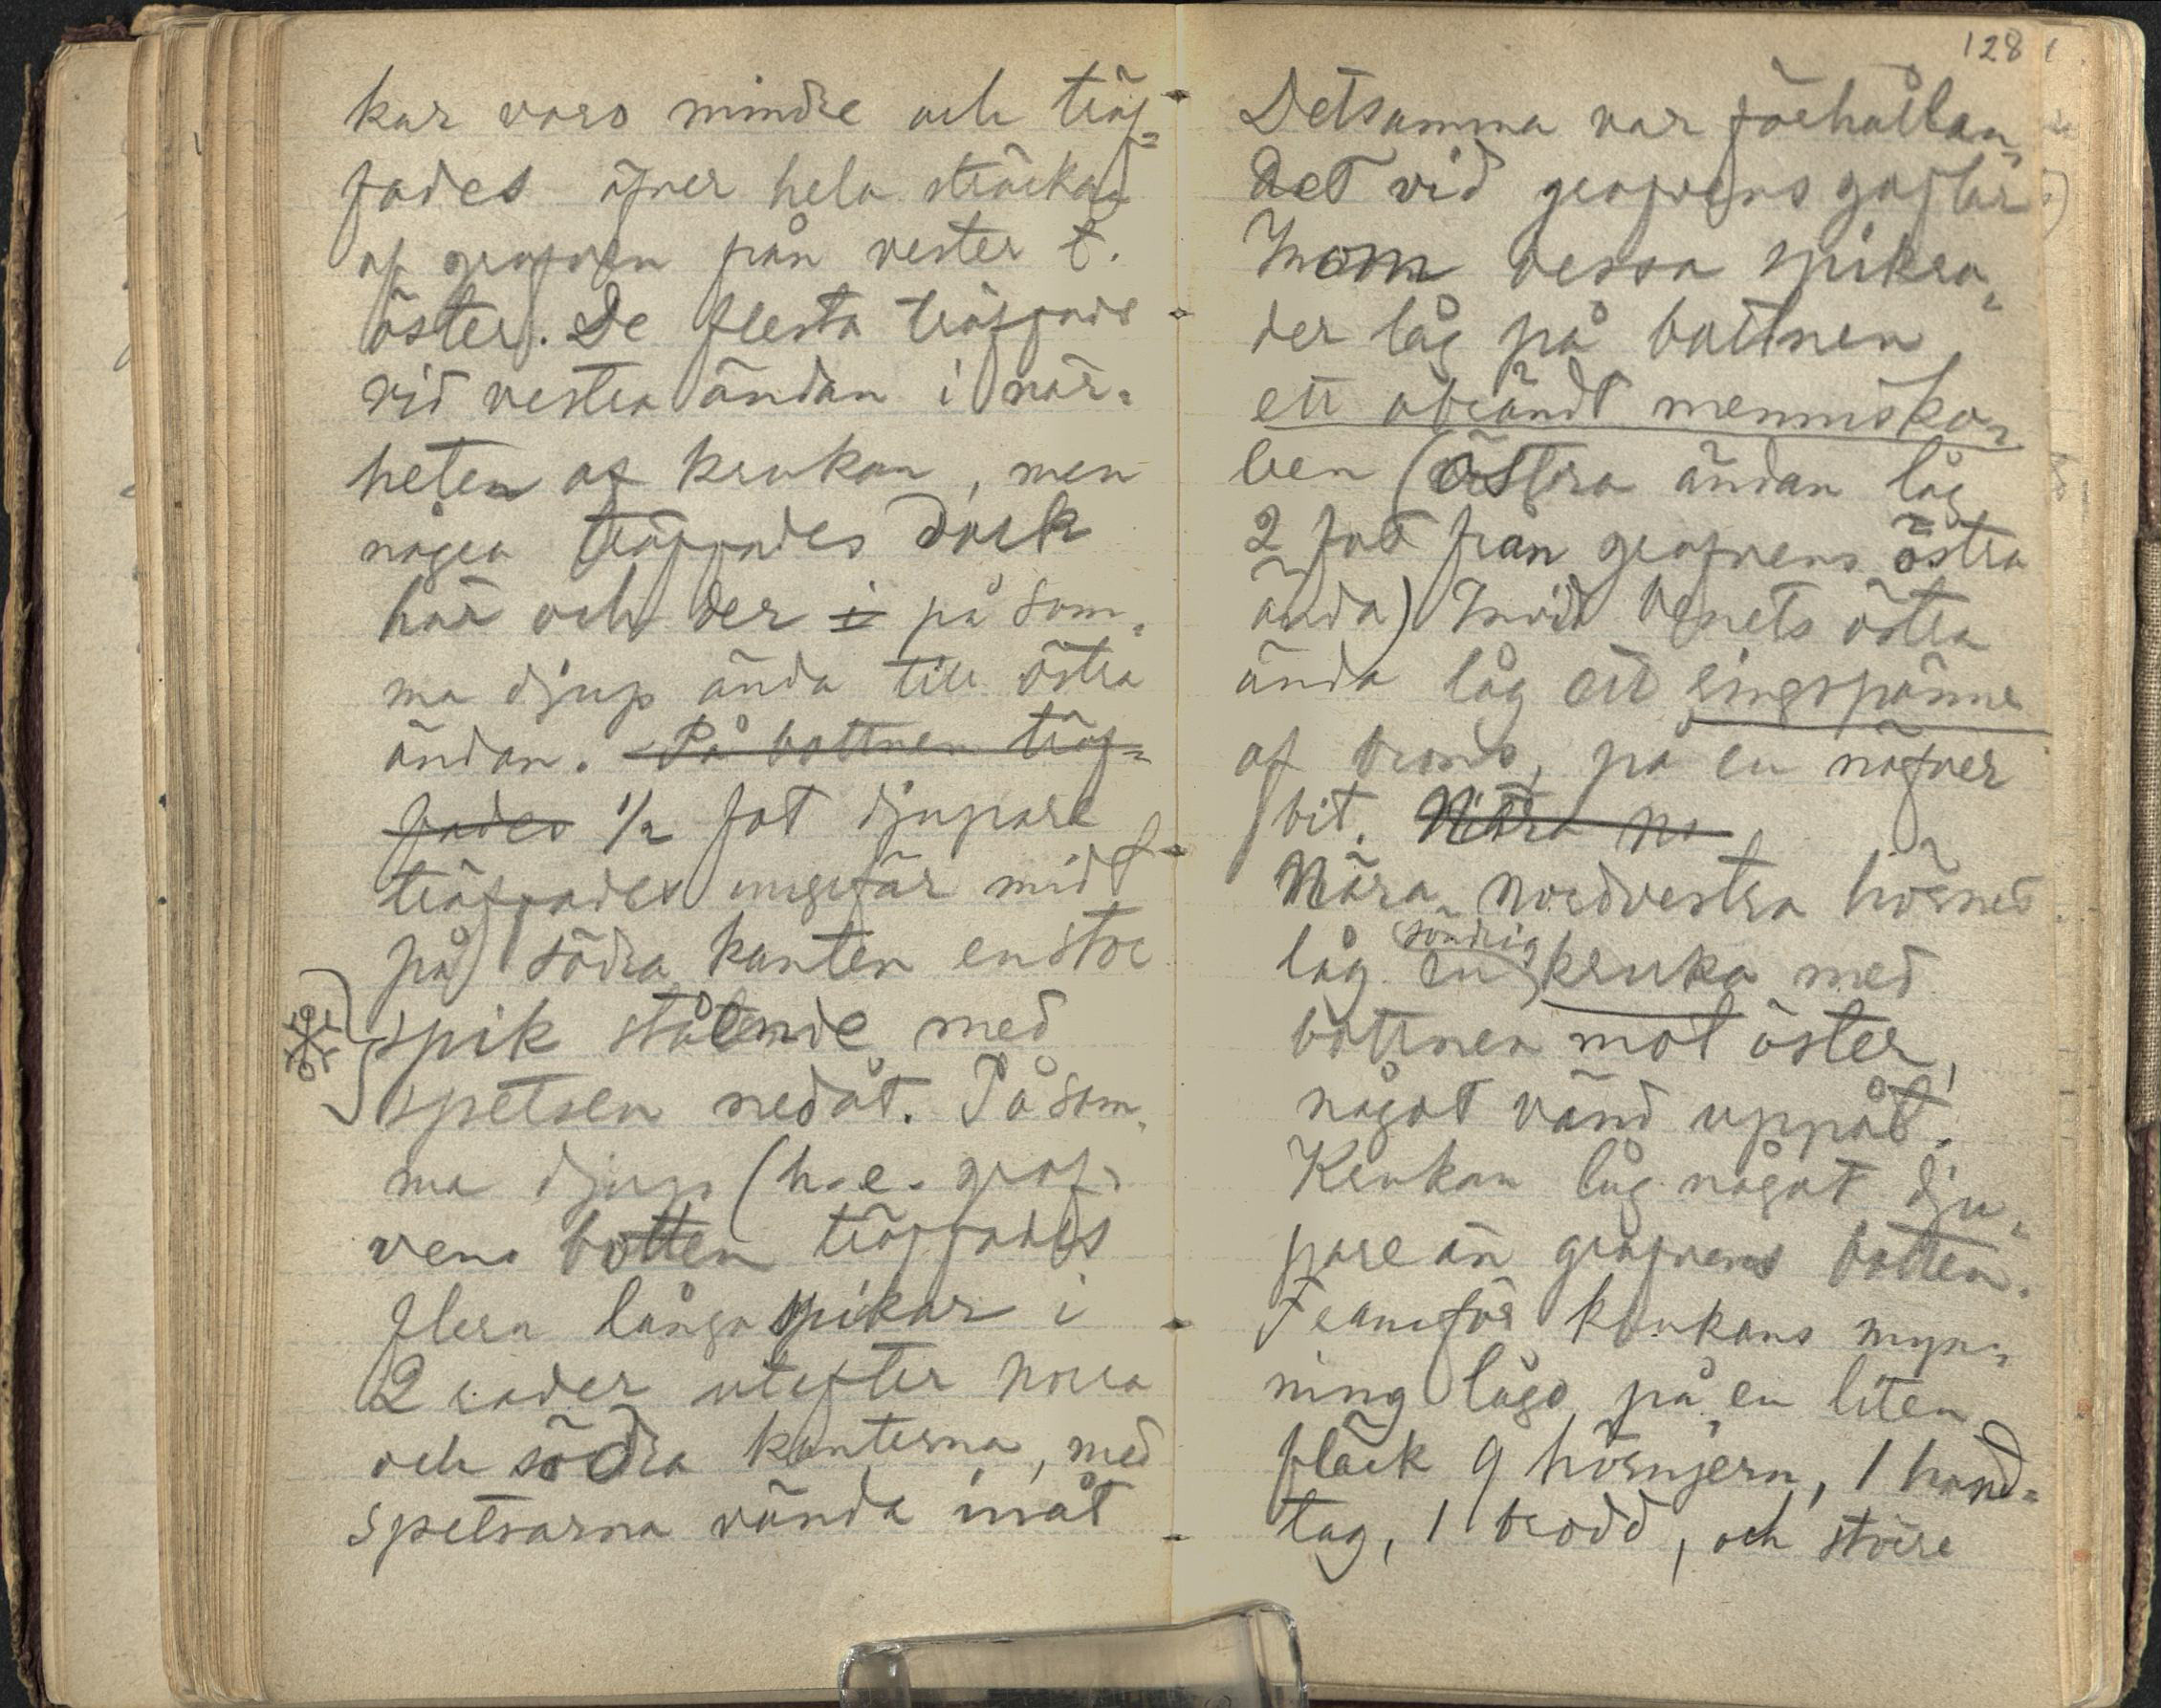 kar voro mindre och träf=
fades öfver hela sträckan
af grafven från vester t.
öster. De flesta träffade
vid vestra ändan i när-
heten af krukan, men
några träffades dock
här och der i på sam-
ma djup ända till östra
ändan. På bottnen träf=
fades 1/2 fot djupare
träffades ungefär midt
på södra kanten en stor
spik stående med
spetsen nedåt. På sam-
ma djup (h. e. graf-
vens botten träffades
flera långa spikar i
2 rader utefter norra
och södra kanterna, med
spetsarna vända inåt
128
Detsamma var förhållan-
det vid grafvens gaflar
Inom dessa spikra-
der låg på bottnen
ett obrändt mennisko-
ben (Östra ändan låg
2 fot från grafvens östra
ända) Invid benets östra
ända låg ett ringspänne
af brons, på en näfver
bit. Nära no
Nära nordvestra hörnet
söndrig
låg en kruka med
bottnen mot öster,
något vänd uppåt.
Krukan låg något dju-
pare än grafvens botten.
Framför krukans myn-
ning lågo på en liten
fläck 9 hörnjern, 1 hand=
tag, 1 brodd, och större